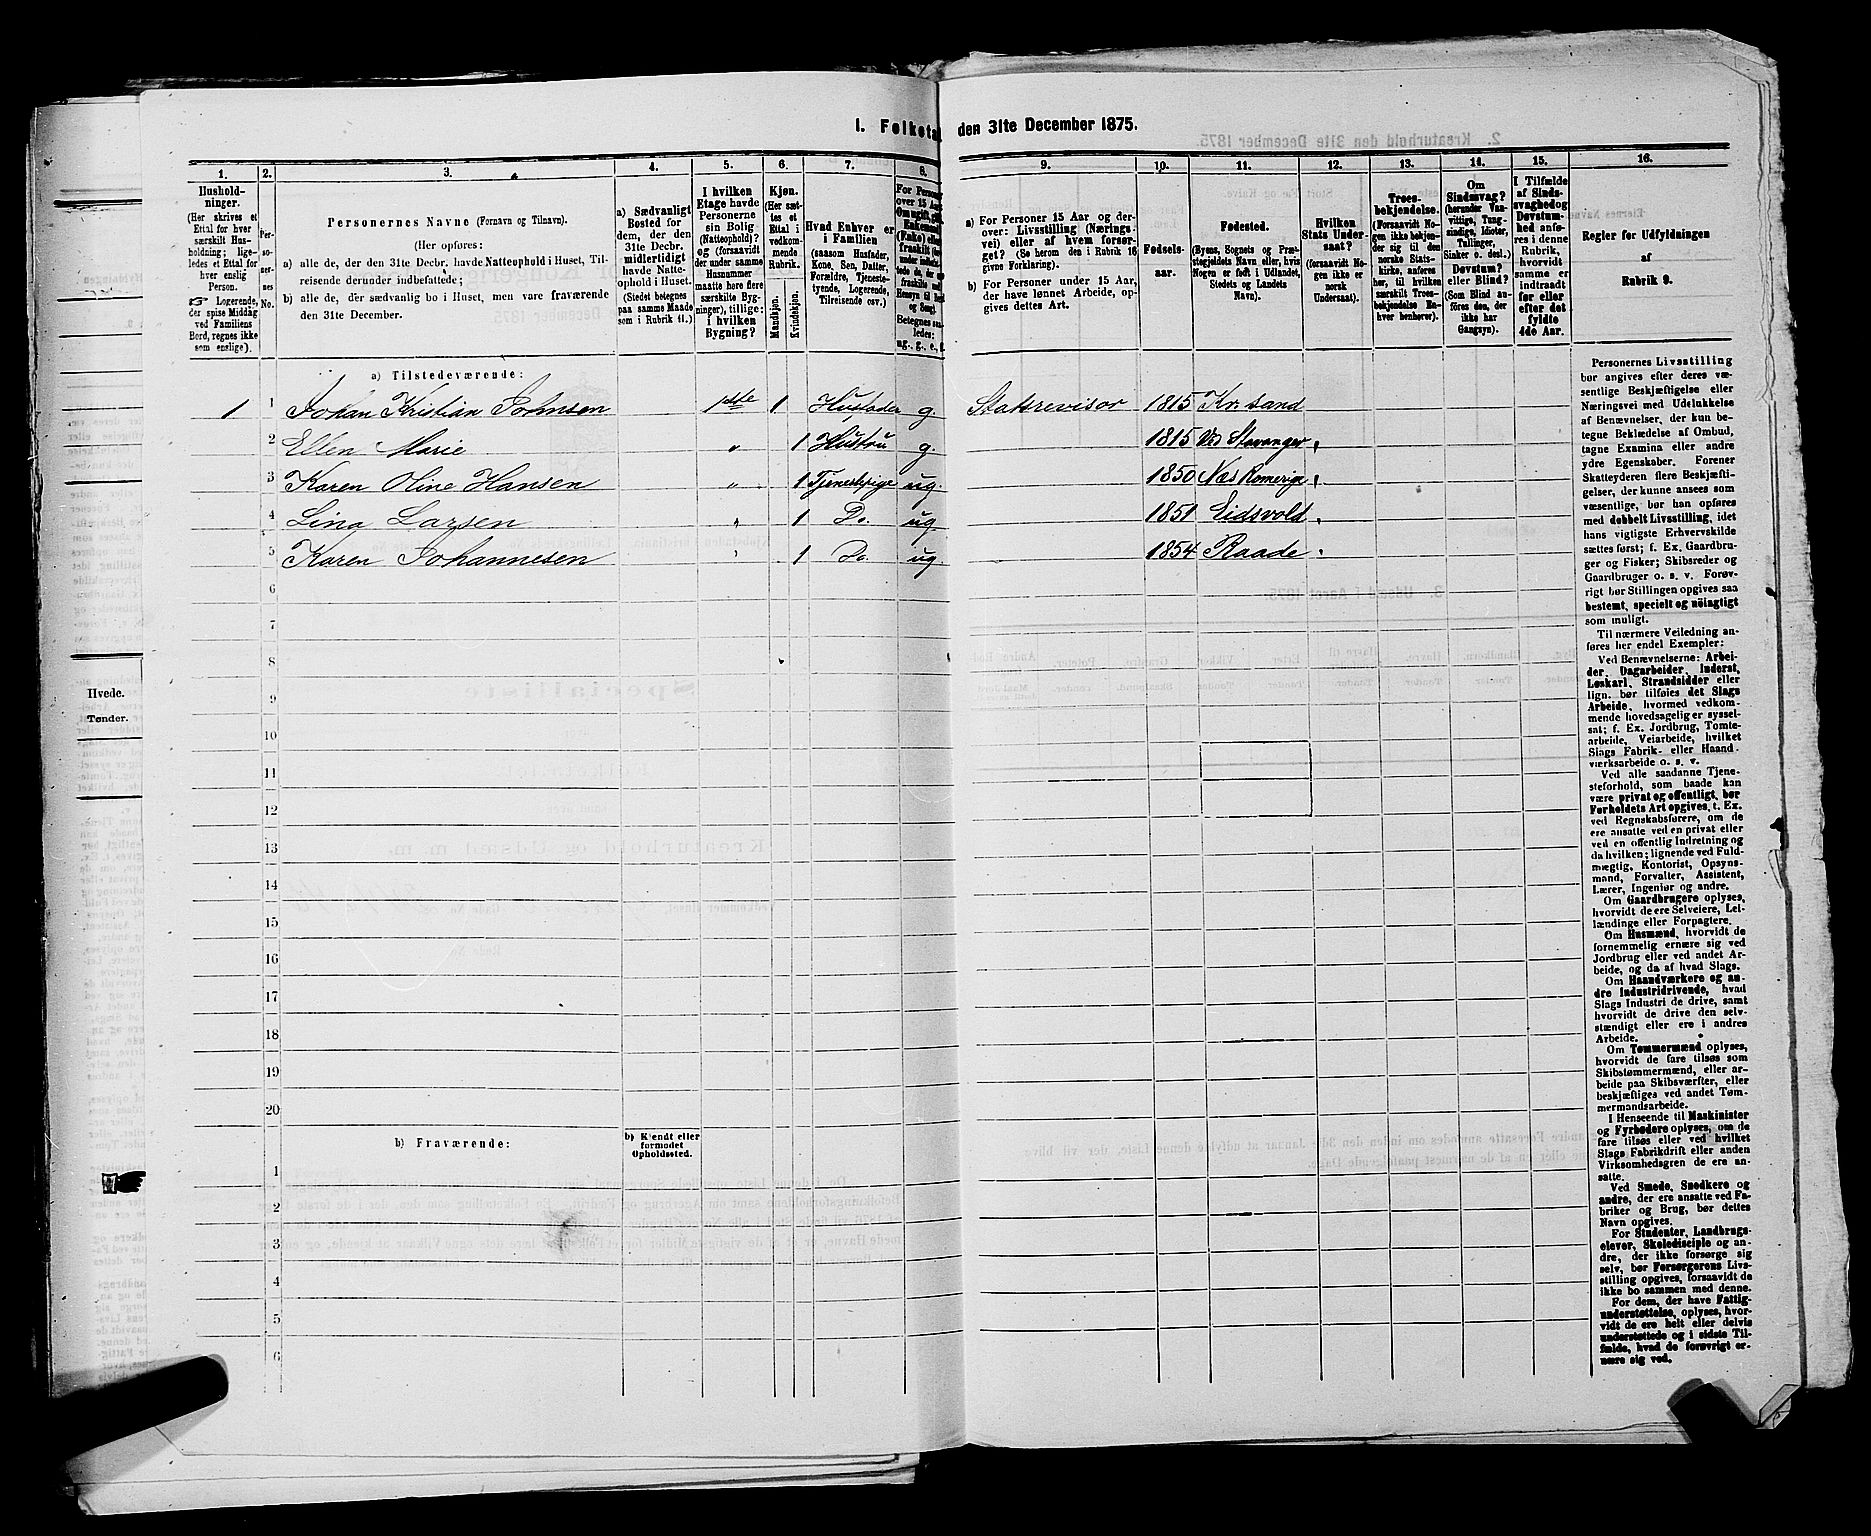 I. Folketæ
den 31te December 1875.
1. 2. 3. 4. 5. 6. 7. 8.
Hushold-
ninger.
(Her skrives et
Ettal for hvert
særskilt Hus-
holdning; lige-
ledes et Ettal for
hver enslig
Person.
☞ Logerende,
der spise Middag
ved Familiens
Bord, regnes ikke
som enslige).
Per-
so-
ner-
nes
No.
Personernes Navne (Fornavn og Tilnavn).
(Her opføres:
a) alle de, der den 31te Decbr. havde Natteophold i Huset, Til-
reisende derunder indbefattede;
b) alle de, der sædvanlig bo i Huset, men vare fraværende
den 31te December.
a) Sædvanligt
Bosted for
dem, der den
31te Decbr.
midlertidigt
havde Natte-
ophold i Huset.
(Stedet betegnes
paa samme Maade
som i Rubrik 11.)
I hvilken
Etage havde
Personerne
sin Bolig
(Natteophold)?
og (forsaavidt
der under samme
Husnummer
maatte høre flere
særskilte Byg-
ninger), tillige:
i hvilken
Bygning?
Kjøn.
(Her sæt-
tes et
Ettal i
vedkom-
mende
Rubrik.
Mandkjøn.
Kvindekjøn.
Hvad Enhver er
i Familien
(saasom Husfader,
Kone, Søn, Datter,
Forældre, Tjeneste-
tyende, Logerende,
Tilreisende osv.)
For Personer
over 15 Aar
9. 10. 11. 12. 13. 14. 15. 16.
a) For Personer 15 Aar og der-
over: Livsstilling (Nærings-
vei) eller af hvem forsør-
get? (Se herom den i Rubrik 16
givne Forklaring).
b) For Personer under 15 Aar,
der have lønnet Arbeide, op-
gives dettes Art.
Fødsels-
aar.
Fødested.
(Byens, Sognets og Præ-
stegjeldets Navn eller, hvis
Nogen er født i Udlandet,
Stedets og Landets
Navn).
Hvilken
Stats Under-
saat?
(forsaavidt No-
gen ikke er
norsk
Undersaat).
Troes-
bekjendelse.
(Forsaavidt No-
gen ikke bekjen-
der sig til den
norske Stats-
kirke, anføres
her, til hvilken
særskilt Troes-
bekjendelse En-
hver henhører).
Om
Sindssvag?
(herunder Van-
vittige, Tung-
sindige, Idioter,
Tullinger,
Sinker o. desl.)
Døvstum?
eller Blind?
(Som Blind an-
føres den, der
ikke har
Gangsyn).
I Tilfælde
af Sinds-
svaghed og
Døvstum-
hed anfø-
res i denne
Rubrik,
hvorvidt
samme er
indtraadt
før eller
efter det
fyldte
4de Aar.
Regler før Udfyldningen
af
Rubrik 9.
a) Tilstedeværende:
1 1 Johan Kristian Johnsen 1ste 1 Husfader g. Statsrevisor 1815 Kr.sand
2 Ellen Marie " 1 Hustru g. 1815 Ved Stavanger
3 Karen Oline Hansen " 1 Tjenestepige ug. 1850 Næs Romerige
4 Lina Larsen " 1 Do. ug. 1851 Eidsvold
5 Karen Johannesen " 1 Do. ug. 1854 Raade
6
7
8
9
10
11
12
13
14
15
16
17
18
19
20
b) Fraværende:
b) Kjendt eller
formodet
Opholdssted.
1
2
3
4
5
6
Personernes Livsstilling
bør angives efter deres væ-
sentlige Beskjæftigelse eller
Næringsvei med Udelukkelse
af Benævnelser, der kun be-
tegne Beklædelse af Ombud,
tagne Examina eller andre
ydre Egenskaber. Forener
Skatteyderen flere Beskjæfti-
gelser, der kunne ansees som
væsentlige, bør han opføres
med dobbelt Livsstilling, idet
hans vigtigste Erhvervskilde
sættes først; f. Ex. Gaardbru-
ger og Fisker; Skibsreder og
Gaardbruger o. s. v. Forøv-
rigt bør Stillingen opgives saa
bestemt, specielt og nøiagtigt
som muligt.
Til nærmere Veiledning an-
føres her endel Exempler:
Ved Benævnelserne: Arbei-
der, Dagarbeider, Inderst,
Løskarl, Strandsidder eller
lign. bør tilføies det Slags
Arbeide, hvormed vedkom-
mende hovedsagelig er syssel-
sat; f. Ex. Jordbrug, Tomte-
arbeide, Veiarbeide, hvilket
Slags Fabrik- eller Haand-
værksarbeide o. s. v.
Ved alle saadanne Tjene-
steforhold, som baade kan
være privat og offentligt, bør
Forholdets Art opgives, t. Ex.
ved Regnskabsførere, om de
ere ansatte ved en privat eller
ved en offentlig Indretning og
da hvilken; lignende ved Fuld-
mægtig, Kontorist, Opsyns-
mand, Forvalter, Assistent,
Lærer, Ingeniør og andre.
Om Gaardbrugere oplyses,
hvorvidt de ere Selveiere, Lei-
lændinge eller Forpagtere.
Om Husmænd, hvorvidt de
fornemmelig ernære sig ved
Jordbrug eller ved andet Ar-
beide, og da af hvad Slags.
Om Haandværkere og an-
dre Industridrivende, hvad
Slags Industri de drive, samt
hvorvidt de drive den selv-
stændigt eller ere i andres
Arbeide.
Om Tømmermænd oplyses,
hvorvidt de fare tilsøs som
Skibstømmermænd, eller ar-
beide paa Skibsværfter, eller
beskjæftiges ved andet Tøm-
mermandsarbeide.
I Henseende til Maskinister
og Fyrbødere oplyses, om de
fare tilsøs eller ved hvilket
Slags Fabrikdrift eller anden
Virksomhedsgren de ere an-
satte.
Ved Smede, Snedkere og
andre, der ere ansatte ved Fa-
briker og Brug, bør dettes
Navn opgives.
For Studenter, Landbrugs-
elever, Skoledisciple og an-
dre, der ikke forsørge sig
selv, bør Forsørgerens Livs-
stilling opgives, forsaavidt de
ikke bo sammen med denne.
For dem, der have Fattig-
understøttelse, oplyses, hvor-
vidt de ere helt eller delvis
understøttede og i sidste Til-
fælde, hvad de forøvrigt er-
nære sig ved.
Hvede.
Tønder.